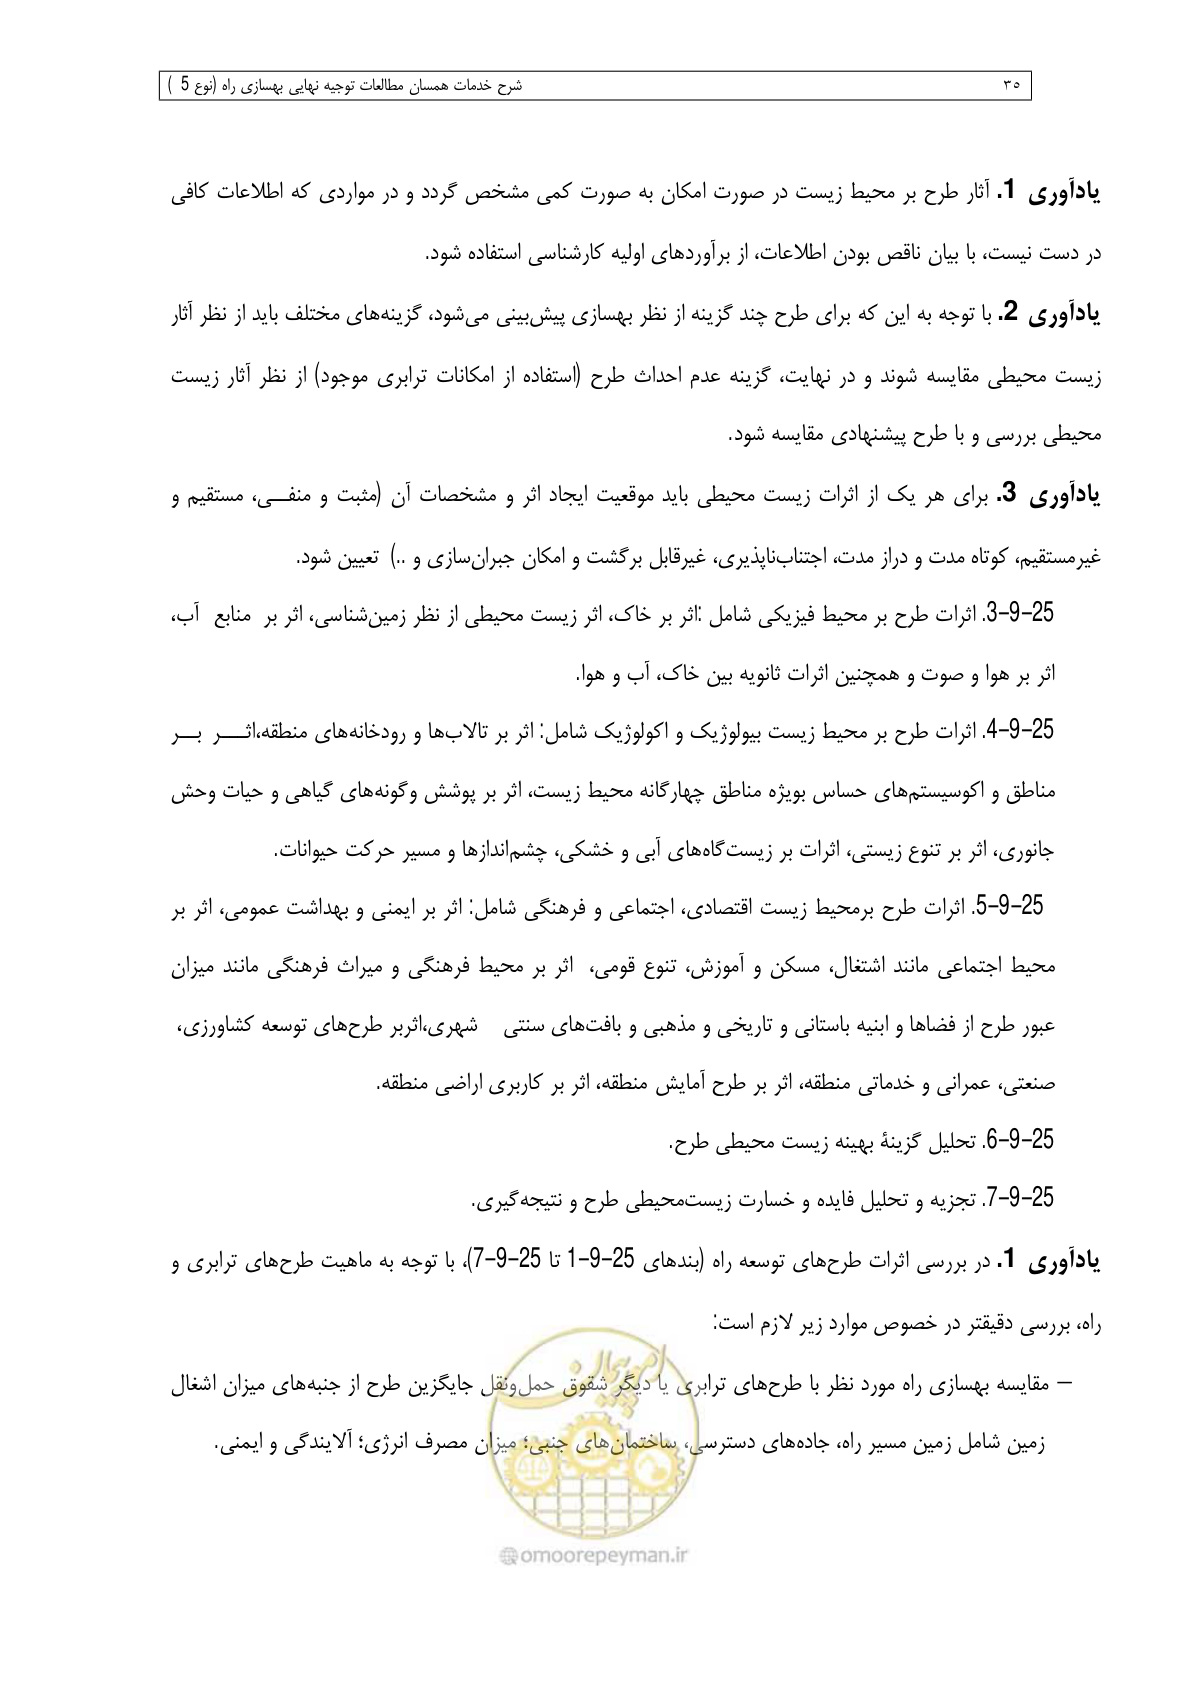 ۳۵ شرح خدمات همسان مطالعات توجیه نهایی بهسازی راه (نوع 5 )
یادآوری 1. آثار طرح بر محیط زیست در صورت امکان به صورت کمی مشخص گردد و در مواردی که اطلاعات کافی
در دست نیست، با بیان ناقص بودن اطلاعات، از برآوردهای اولیه کارشناسی استفاده شود.
یادآوری 2. با توجه به این که برای طرح چند گزینه از نظر بهسازی پیش‌بینی می‌شود، گزینه‌های مختلف باید از نظر آثار
زیست محیطی مقایسه شوند و در نهایت، گزینه عدم احداث طرح (استفاده از امکانات ترابری موجود) از نظر آثار زیست
محیطی بررسی و با طرح پیشنهادی مقایسه شود.
یادآوری 3. برای هر یک از اثرات زیست محیطی باید موقعیت ایجاد اثر و مشخصات آن (مثبت و منفــی، مستقیم و
غیرمستقیم، کوتاه مدت و دراز مدت، اجتناب‌ناپذیری، غیرقابل برگشت و امکان جبران‌سازی و ..) تعیین شود.
3-9-25. اثرات طرح بر محیط فیزیکی شامل :اثر بر خاک، اثر زیست محیطی از نظر زمین‌شناسی، اثر بر منابع آب،
اثر بر هوا و صوت و همچنین اثرات ثانویه بین خاک، آب و هوا.
4-9-25. اثرات طرح بر محیط زیست بیولوژیک و اکولوژیک شامل: اثر بر تالاب‌ها و رودخانه‌های منطقه،اثـــر بــر
مناطق و اکوسیستم‌های حساس بویژه مناطق چهارگانه محیط زیست، اثر بر پوشش وگونه‌های گیاهی و حیات وحش
جانوری، اثر بر تنوع زیستی، اثرات بر زیست‌گاه‌های آبی و خشکی، چشم‌اندازها و مسیر حرکت حیوانات.
5-9-25. اثرات طرح برمحیط زیست اقتصادی، اجتماعی و فرهنگی شامل: اثر بر ایمنی و بهداشت عمومی، اثر بر
محیط اجتماعی مانند اشتغال، مسکن و آموزش، تنوع قومی، اثر بر محیط فرهنگی و میراث فرهنگی مانند میزان
عبور طرح از فضاها و ابنیه باستانی و تاریخی و مذهبی و بافت‌های سنتی شهری،اثربر طرح‌های توسعه کشاورزی،
صنعتی، عمرانی و خدماتی منطقه، اثر بر طرح آمایش منطقه، اثر بر کاربری اراضی منطقه.
6-9-25. تحلیل گزینهٔ بهینه زیست محیطی طرح.
7-9-25. تجزیه و تحلیل فایده و خسارت زیست‌محیطی طرح و نتیجه‌گیری.
یادآوری 1. در بررسی اثرات طرح‌های توسعه راه (بندهای 25-9-1 تا 25-9-7)، با توجه به ماهیت طرح‌های ترابری و
راه، بررسی دقیقتر در خصوص موارد زیر لازم است:
– مقایسه بهسازی راه مورد نظر با طرح‌های ترابری یا دیگر شقوق حمل‌ونقل جایگزین طرح از جنبه‌های میزان اشغال
زمین شامل زمین مسیر راه، جاده‌های دسترسی، ساختمان‌های جنبی؛ میزان مصرف انرژی؛ آلایندگی و ایمنی.
امور پیمان
@omoorepeyman.ir